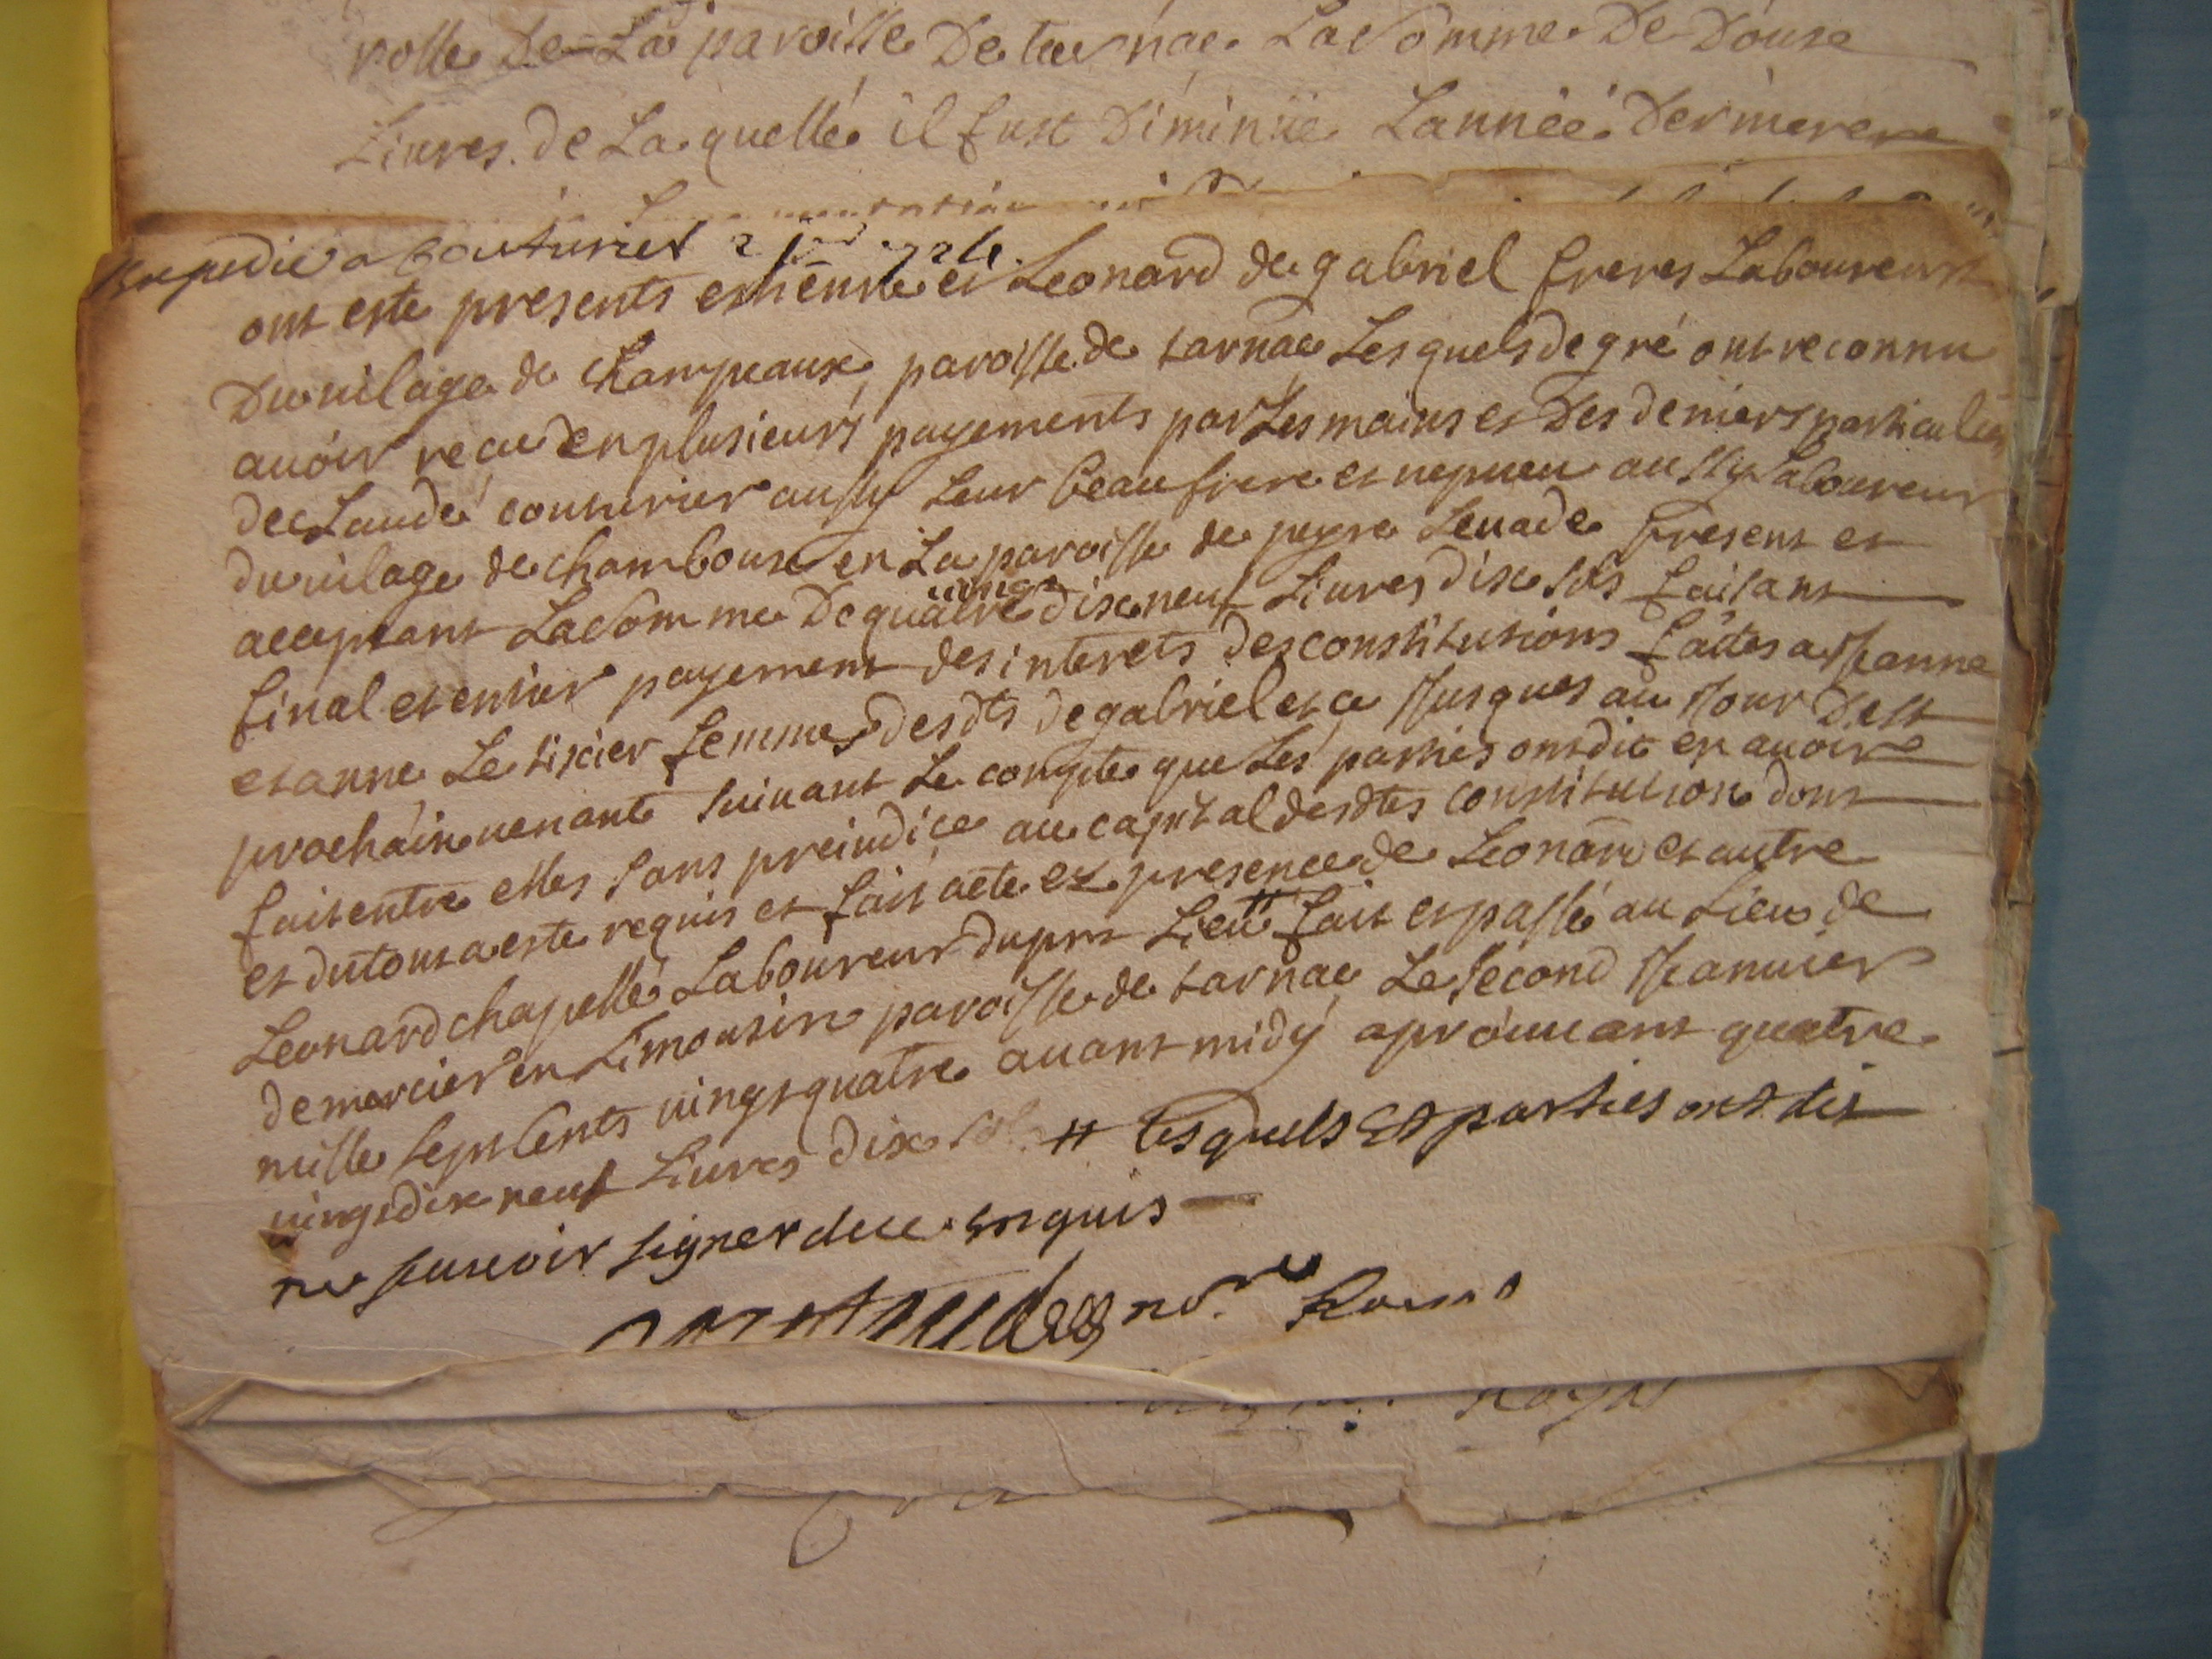 rolle de La paroisse De tarnac La Somme De Douse
Liures de La quelle il fust Diminüe Lannéé Derniere
Expedié a couturier
ont este presents estienne et Leonard de gabriel freres Laboureurs
Du uilage de champeaux paroisse de tarnac Lesquels de gré ont reconnu
auoir receu en plusieurs payements par Les mains et Des deniers particuliers
de Laudé couturier aussy Leur beau frere et nepueu aussy Laboureur
du uilage de chamboux en La paroisse de peyre Leuade present et
acceptant La Somme De quatre uingt dix neuf Liures dix sols faisant
final et entier payement des interets des constitutions faites a Jeanne
et anne Le tixier femmes desdts de gabriel et ce Jusques au Jour D'est
prochain uenant suiuant Le compte que Les parties ont dit en auoir
fait entre elles sans preiudice au capital desdtes constitution dont
et du tout a este requis et fait acte ez presence de Leonard et autre
Leonard chapelle Laboureur du prst Lieu # fait et passé au Lieu de
demercier en Limousin paroisse de tarnac Le second Jeanuier
mille sept cents uingt quatre auant midy aprouuant quatre
uingt dix neuf Liures dix sols # Lesquels et parties ont dit
ne scauoir signer de ce enquis
nore Royal
Royal